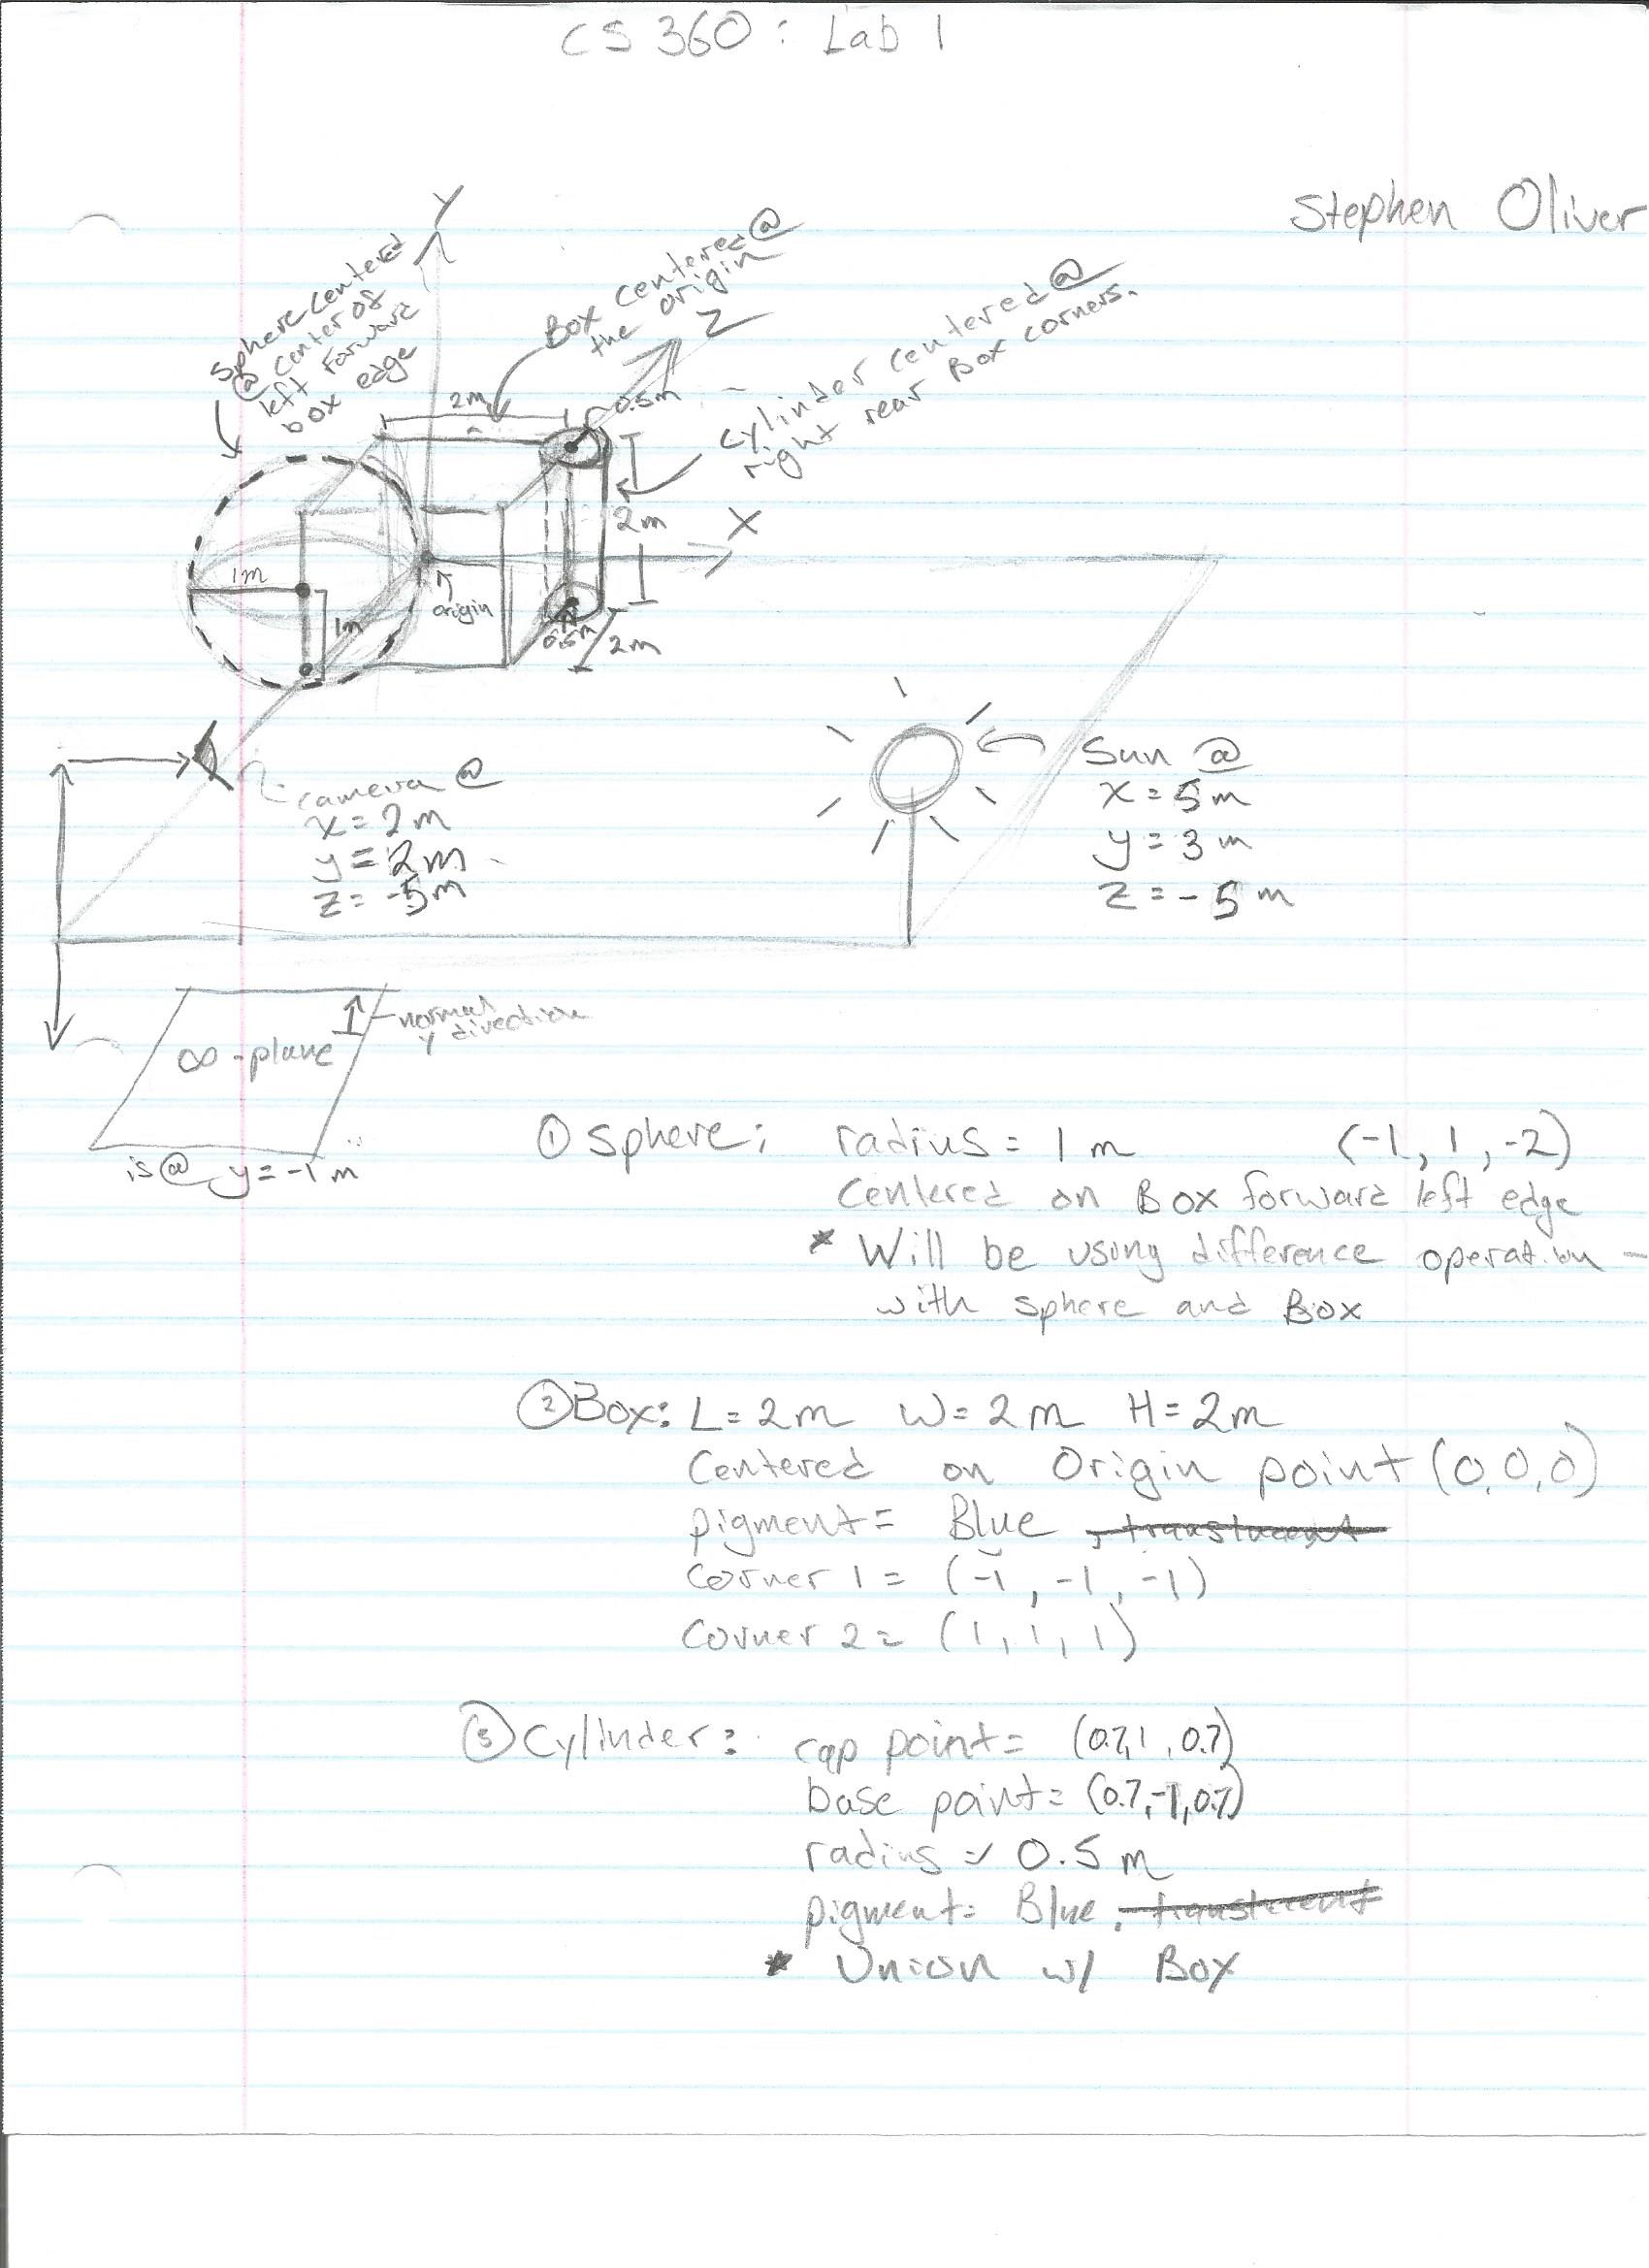 CS 360: Lab 1
Stephen Oliver
Y
Sphere centered
@ center of
left forward
box edge
Box centered @
the origin
Z
cylinder centered @
right rear Box corners.
2m
0.5m
2m
X
1m
origin
1m
0.5m
2m
camera @
x = 2m
y = 2m
z = -5m
Sun @
x = 5m
y = 3m
z = -5m
normal
Y direction
∞-plane
is @ y = -1m
① Sphere: radius = 1m (-1, 1, -2)
Centered on Box forward left edge
* Will be using difference operation -
with sphere and Box
② Box: L = 2m W = 2m H = 2m
Centered on Origin point (0,0,0)
pigment = Blue, translucent
Corner 1 = (-1, -1, -1)
Corner 2 = (1, 1, 1)
③ Cylinder: cap point = (0.7, 1, 0.7)
base point = (0.7, -1, 0.7)
radius = 0.5m
pigment = Blue, translucent
* Union w/ Box